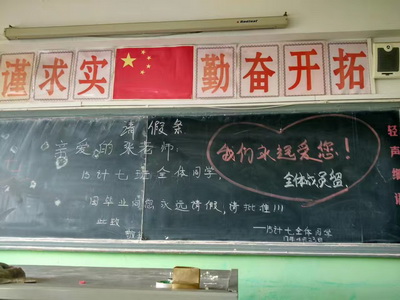 谨求实 勤奋开拓
请假条
亲爱的梁老师:
15计七班全体同学,
因毕业向您永远请假,请批准!!!
此致
我们永远爱您!
全体成员留
——15计七全体同学
轻声细语